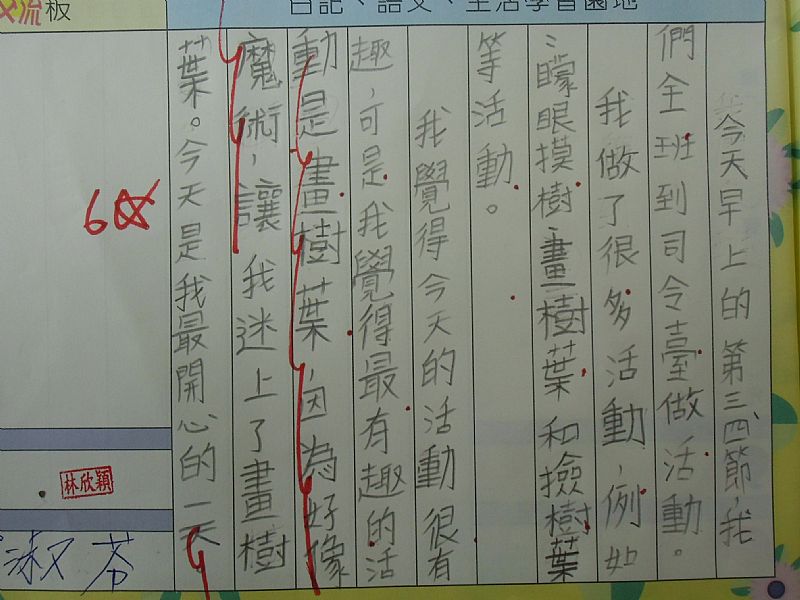 交流板
日記、語文、生活學習園地
今天早上的第三、四節,我
們全班到司令臺做活動。
我做了很多活動,例如
:矇眼摸樹、畫樹葉和撿樹葉
等活動。
我覺得今天的活動很有
趣,可是我覺得最有趣的活
動是畫樹葉,因為好像
魔術,讓我迷上了畫樹
葉。今天是我最開心的一天
6
林欣穎
淑芬